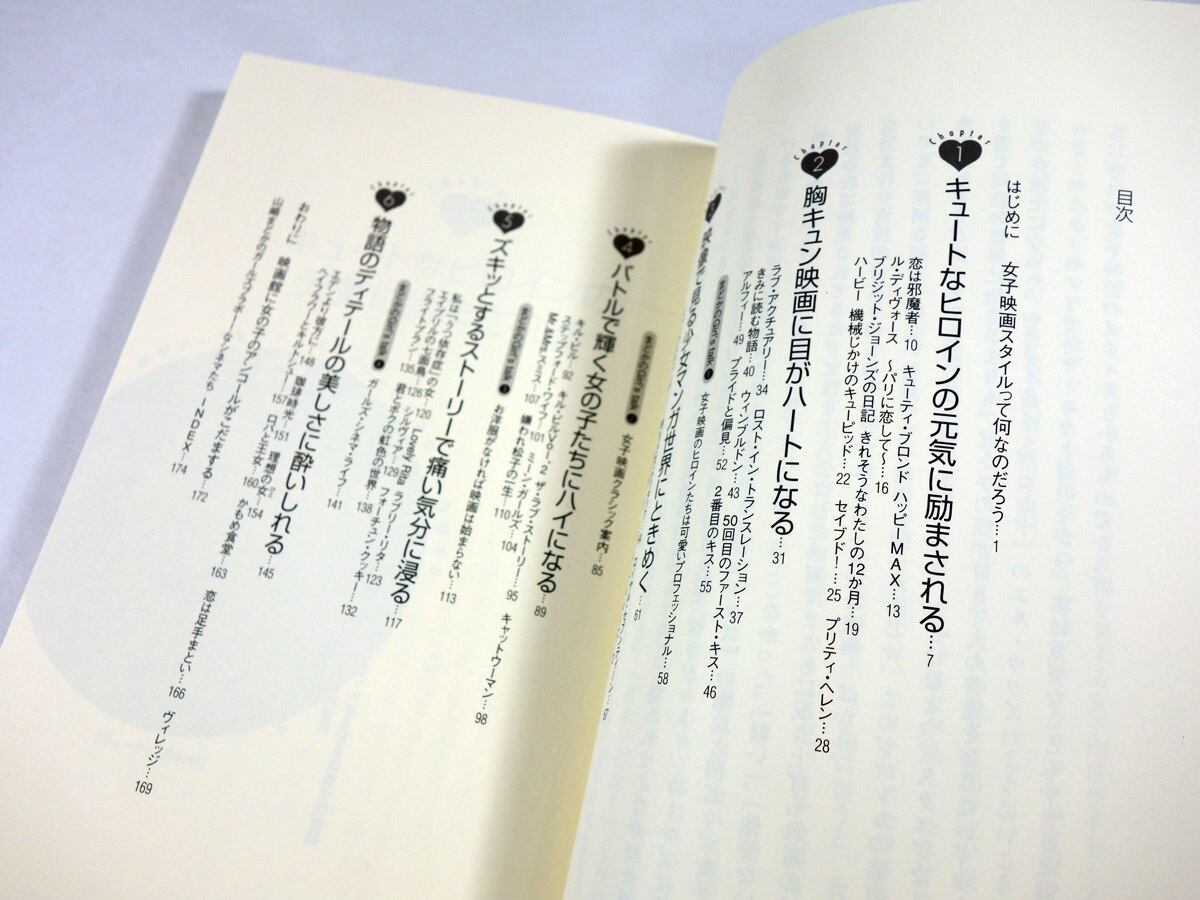 目次
はじめに 女子映画スタイルって何なのだろう…1
Chapter 1 キュートなヒロインの元気に励まされる…7
恋は邪魔者…10 キューティ・ブロンド ハッピーMAX…13
ル・ディヴォース 〜パリに恋して〜…16
ブリジット・ジョーンズの日記 きれそうなわたしの12か月…19
ハービー 機械じかけのキューピッド…22 セイブド!…25 プリティ・ヘレン…28
Chapter 2 胸キュン映画に目がハートになる…31
ラブ・アクチュアリー…34 ロスト・イン・トランスレーション…37
きみに読む物語…40 ウィンブルドン…43 50回目のファースト・キス…46
アルフィー…49 プライドと偏見…52 2番目のキス…55
女子映画のヒロインたちは可愛いプロフェッショナル…58
ときめく…61
女子映画クラシック案内…85
Chapter 4 バトルで輝く女の子たちにハイになる…89
キル・ビル…92 キル・ビルVol.2 ザ・ラブ・ストーリー…95 キャットウーマン…98
ステップフォード・ワイフ…101 ミーン・ガールズ…104
Mr.&Mrs.スミス…107 嫌われ松子の一生…110
お洋服がなければ映画は始まらない…113
Chapter 5 ズキッとするストーリーで痛い気分に浸る…117
私は「うつ依存症」の女…120 Lovely Rita ラブリー・リタ…123
エイプリルの七面鳥…126 シルヴィア…129 フォーチュン・クッキー…132
フライトプラン…135 君とボクの虹色の世界…138
ガールズ・シネマ・ライフ…141
Chapter 6 物語のディテールの美しさに酔いしれる…145
エデンより彼方に…148 珈琲時光…151 理想の女…154
ヘイフラワーとキルトシュー…157 口ハと王女…160 かもめ食堂…163 恋は足手まとい…166 ヴィレッジ…169
おわりに 映画館に女の子のアンコールがこだまする…172
山崎まどかのガールズフラボー!なシネマたち INDEX…174